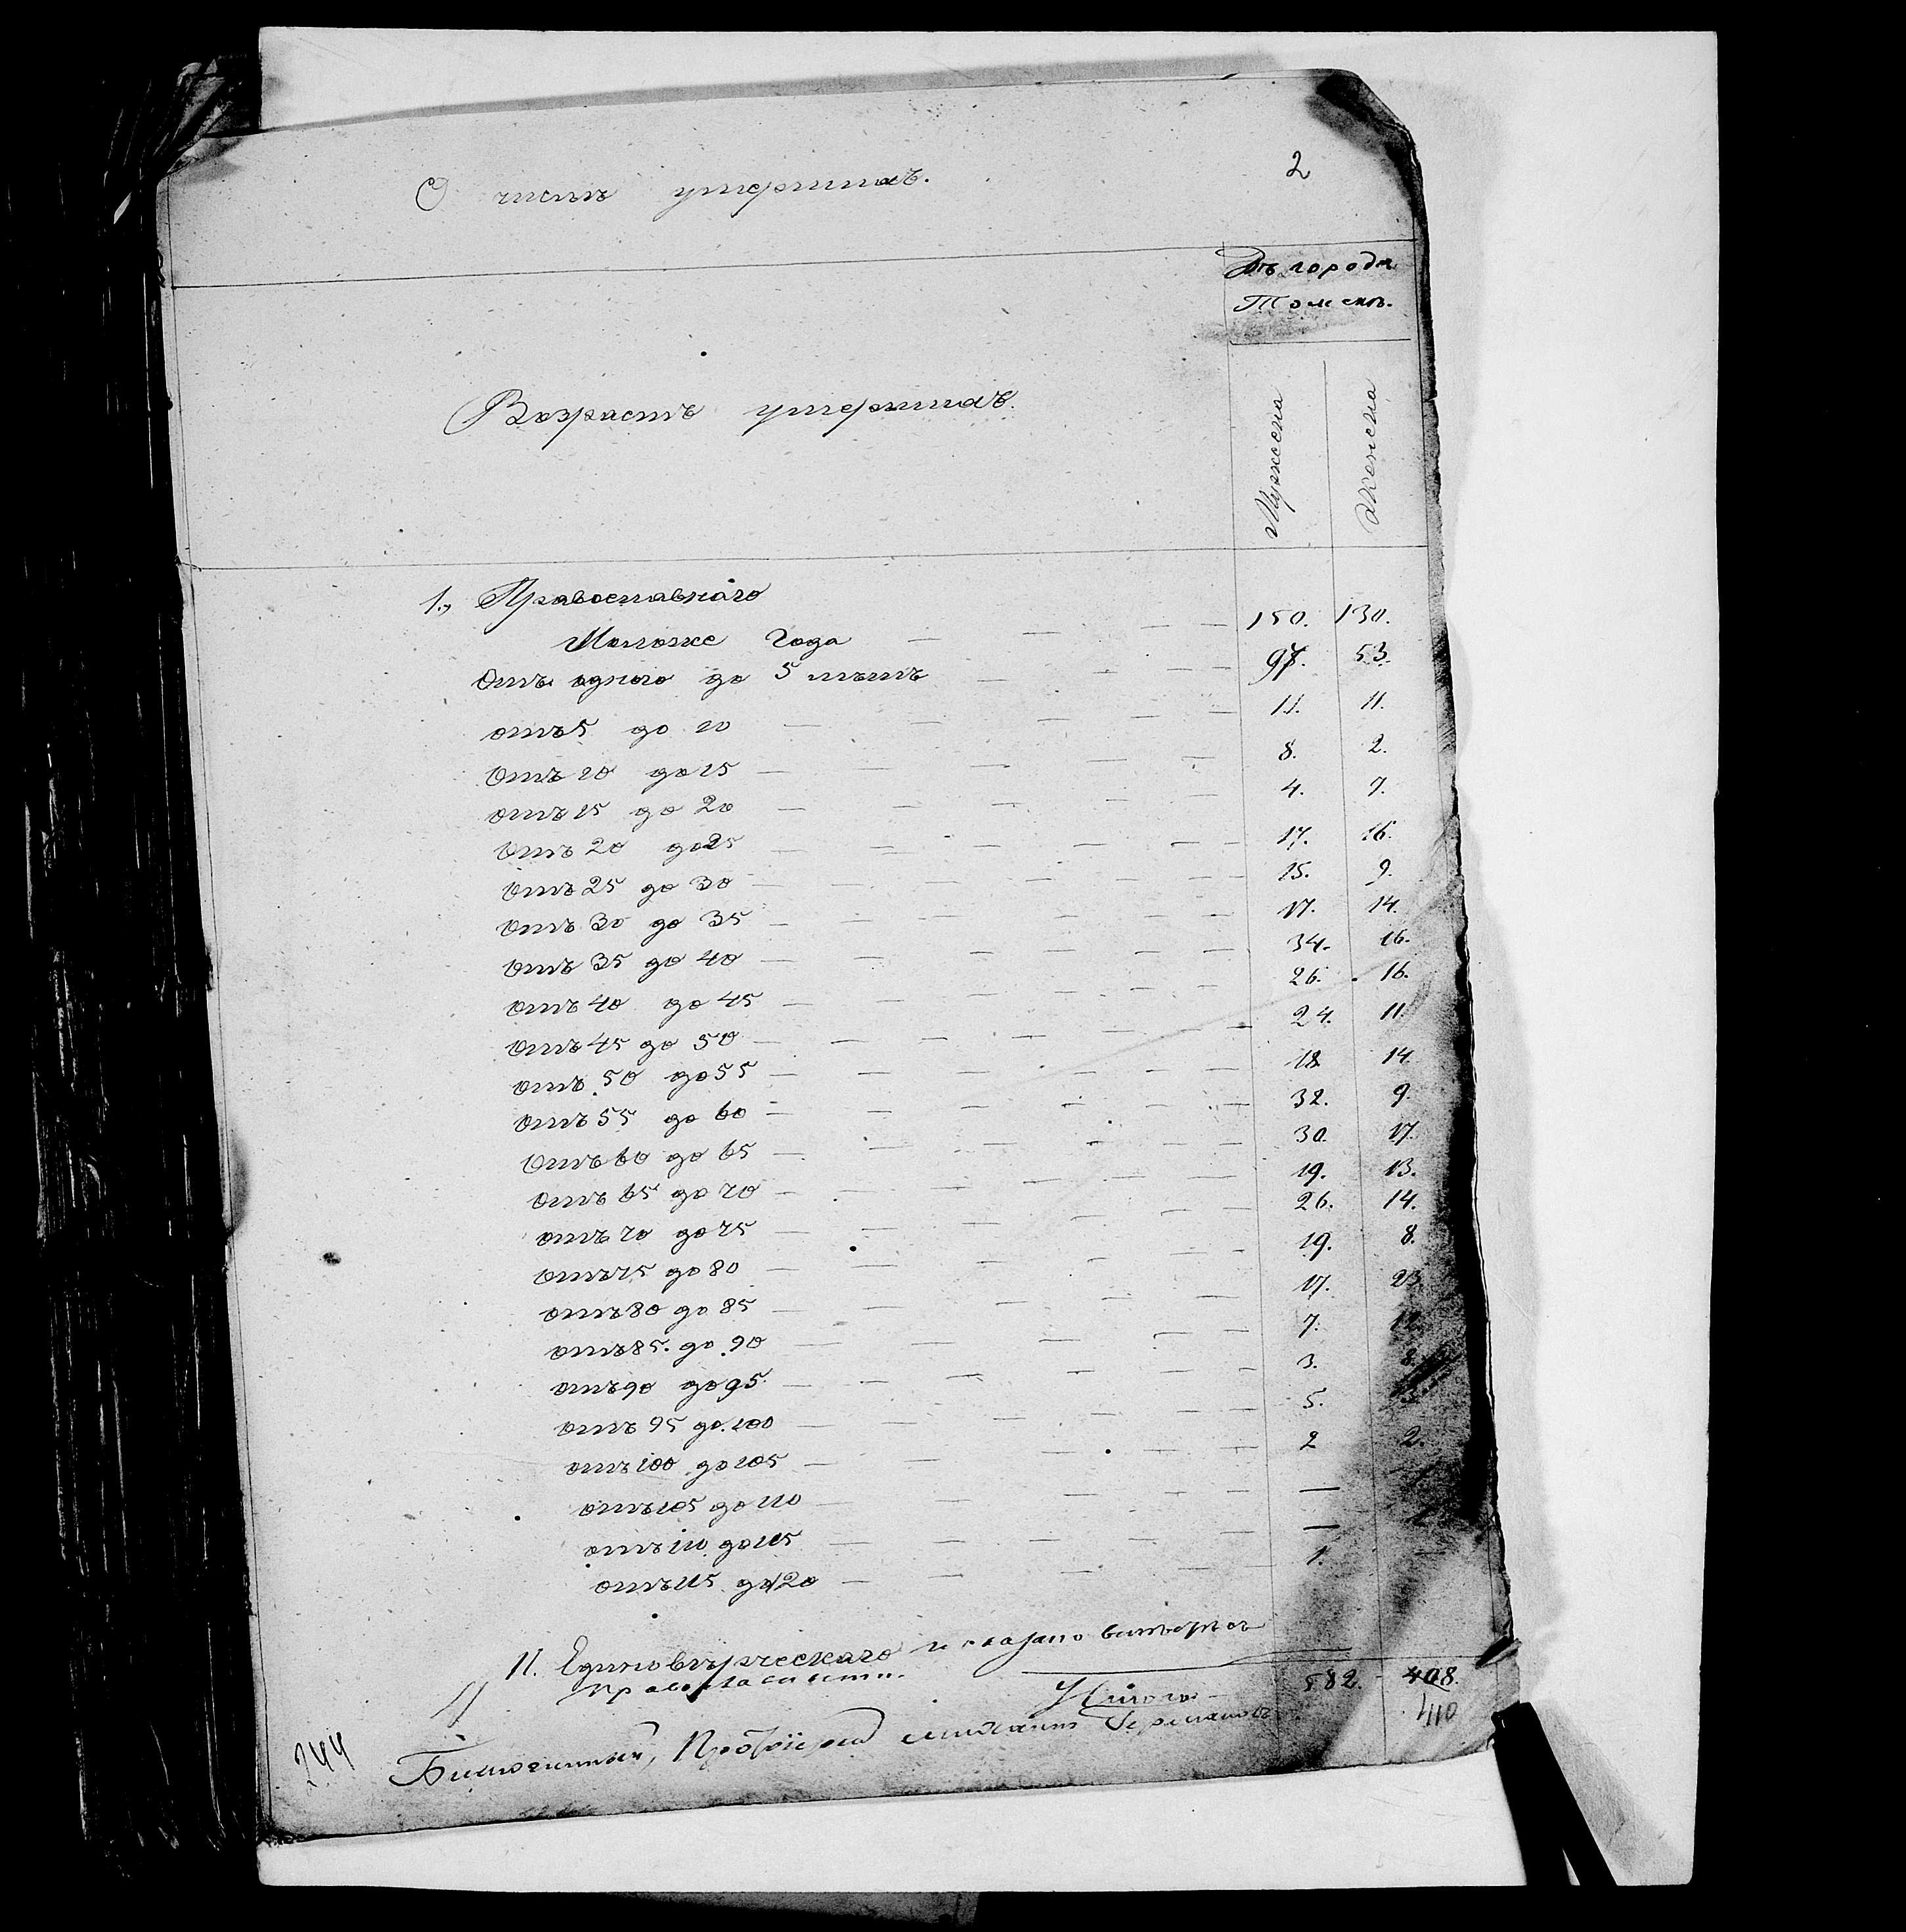 2
О числѣ умершихъ.
Въ городѣ
Томскѣ.
Возрастъ умершихъ.
Мужеска
Женска
1., Православнаго
Моложе года — — — 150. 130.
Отъ одного до 5 лѣтъ — — — 97. 53.
отъ 5 до 10 — — — 11. 11.
Отъ 10 до 15 — — — 8. 2.
отъ 15 до 20 — — — 4. 7.
Отъ 20 до 25 — — — 17. 16.
Отъ 25 до 30 — — — 15. 9.
Отъ 30 до 35 — — — 17. 14.
Отъ 35 до 40 — — — 34. 16.
Отъ 40 до 45 — — — 26. 16.
Отъ 45 до 50 — — — 24. 11.
Отъ 50 до 55 — — — 18 14.
Отъ 55 до 60 — — — 32. 9.
Отъ 60 до 65 — — — 30. 17.
Отъ 65 до 70 — — — 19. 13.
отъ 70 до 75 — — — 26. 14.
Отъ 75 до 80 — — — 19. 8.
отъ 80 до 85 — — — 17. 23.
отъ 85. до 90 — — — 7. 12.
отъ 90 до 95 — — — 3. 8.
отъ 95 до 100 — — — 5.
отъ 100 до 105 — — — 2 2.
отъ 105 до 110 — — — —
отъ 110 до 115 — — — —
отъ 115 до 120 — — — 1.
II. Единовѣрческаго
Итого 582. 408.
410
Благочинный, Протоіерей
244